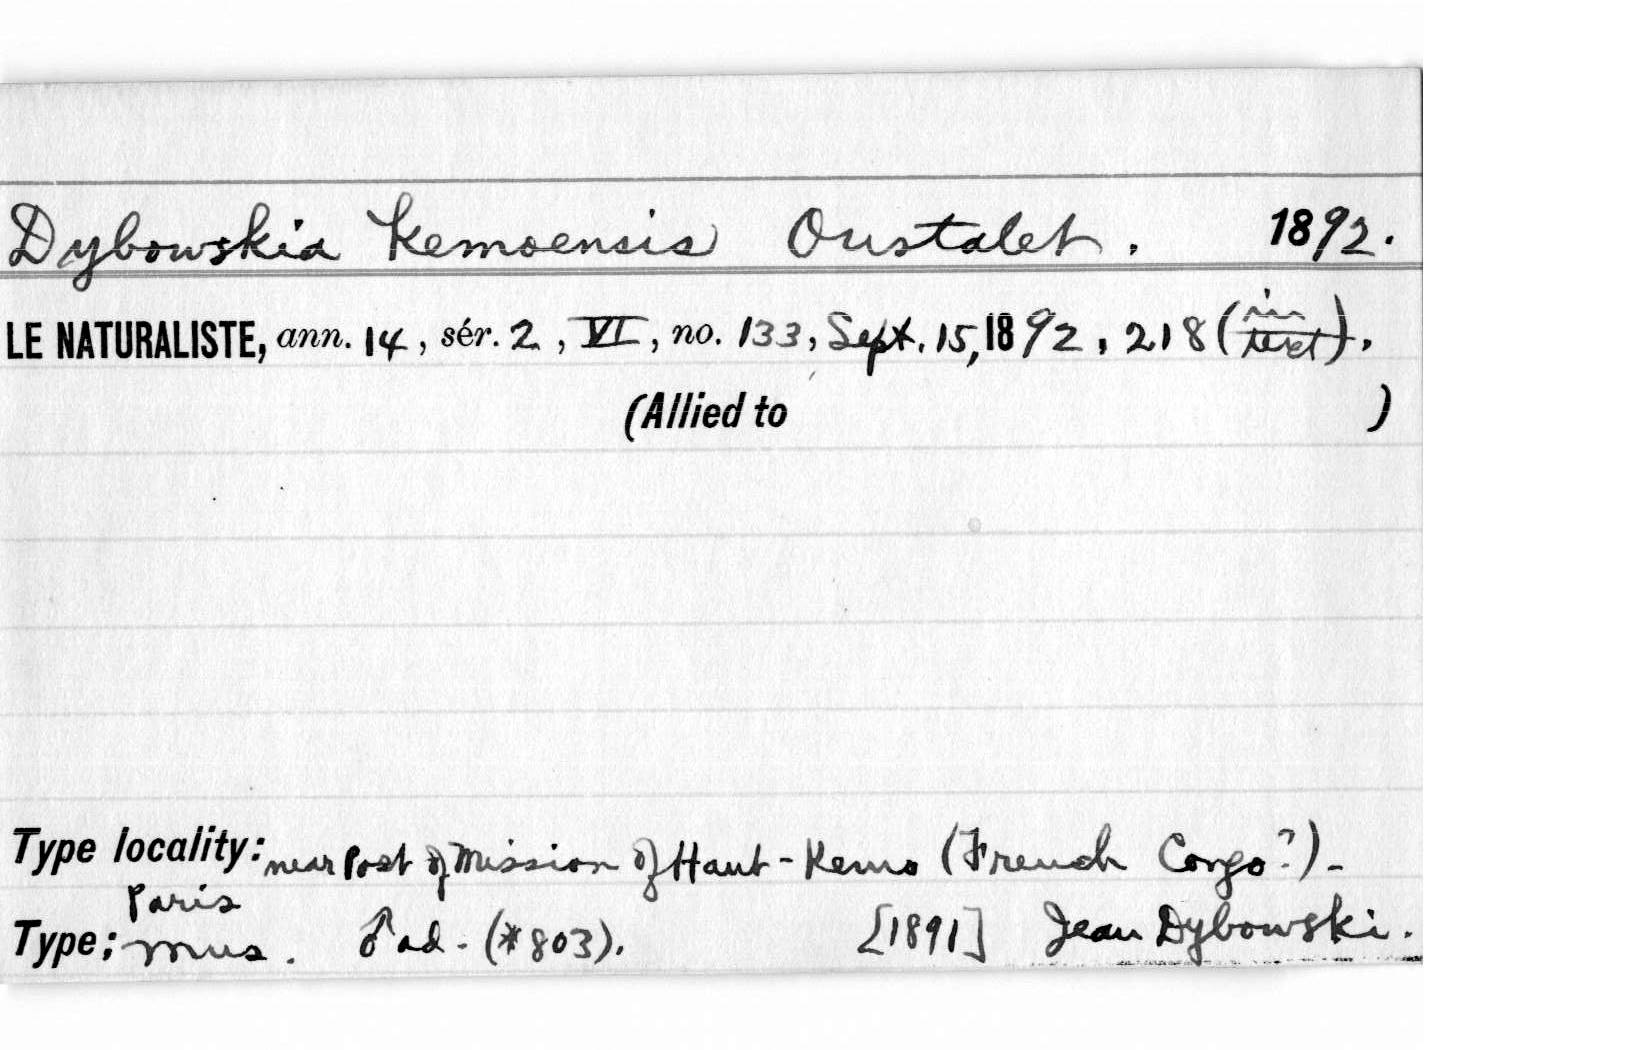 Dybowskia Kemoensis Oustalet. 1892.
LE NATURALISTE, ann. 14, sér. 2, VI, no. 133, Sept. 15, 1892, 218 (in text).
(Allied to )
Type locality: near Post of Mission of Haut-Kemo (French Congo?)-
Paris
Type; Mus. ♂ ad. (*803). [1891] Jean Dybowski.